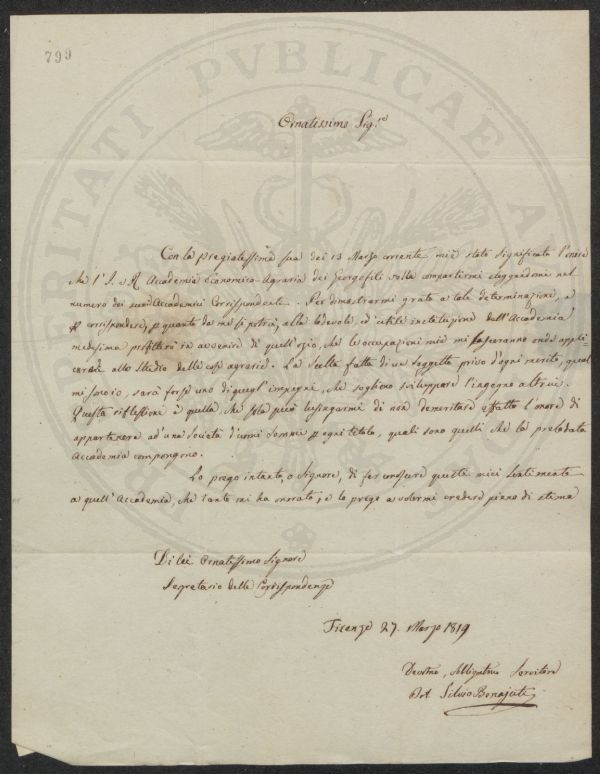 799
PROSPERITATI PVBLICAE A
Ornatissimo Sig.re
Con la pregiatissima sua dei 13 Marzo corrente mi è stato significato l'onore
che l'I. e R. Accademia Economico-Agraria dei Georgofili volle compartirmi eleggendomi nel
numero dei suoi Accademici Corrispondenti. Per dimostrarmi grato a tale determinazione, e
p corrispondere, p quanto da me si potrà, alla lodevole ed utile instituzione dell'Accademia
medesima profitterò in avvenire di quell'ozio, che le occupazioni mie mi lasceranno onde appli
carmi allo studio delle cose agrarie. La scelta fatta di un soggetto privo d'ogni merito, qual
mi sono io, sarà forse uno di quegl'impegni, che sogliono sviluppare l'ingegno altrui.
Questa riflessione è quella che sola può lusingarmi di non demeritare affatto l'onore di
appartenere ad una società d'uomi sommi p ogni titolo, quali sono quelli che la prelodata
Accademia compongono.
La prego intanto, o Signore, di far conoscere questi miei sentimenti
a quell'Accademia, che tanto mi ha onorato, e la prego a volermi credere pieno di stima
Di lei Ornatissimo Signore
Segretario delle Corrispondenze
Firenze 27. Marzo 1819
Devotmo, Obbligatmo Servitore
Dot. Silvio Bonajuti